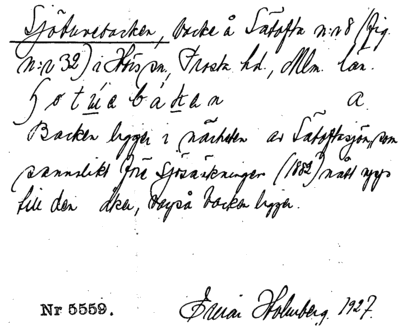 Sjöturebacken, backe å Sätofta n:r 8 (fig.
n:r 32) i Hörs sn, Frosta hd, Mlm. län.
a.
Backen ligger i närheten av Sätoftasjön, som
sannolikt före sjösänkningen (1882) nått upp
till den åker, varpå backen ligger.
Nr 5559.
Holmberg. 1927.